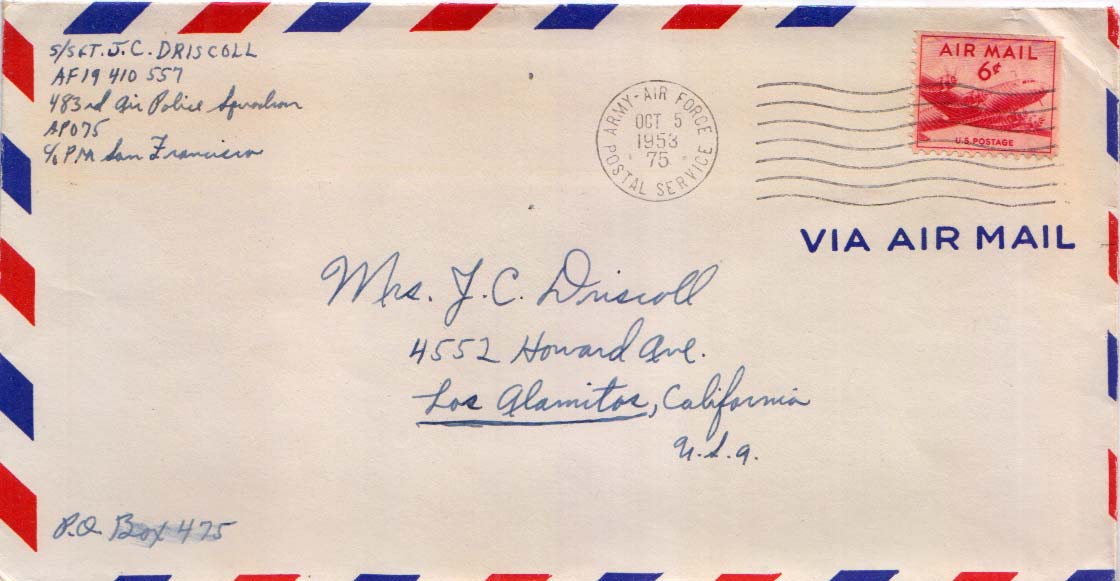 S/SGT. J. C. DRISCOLL
AF 19 410 557
483rd Air Police Squadron
APO 75
c/o PM San Francisco
ARMY - AIR FORCE
OCT 5
1953
75
POSTAL SERVICE
AIR MAIL
6¢
U.S. POSTAGE
VIA AIR MAIL
Mrs. J. C. Driscoll
4552 Howard Ave.
Los Alamitos, California
U.S.A.
P.O. Box 475